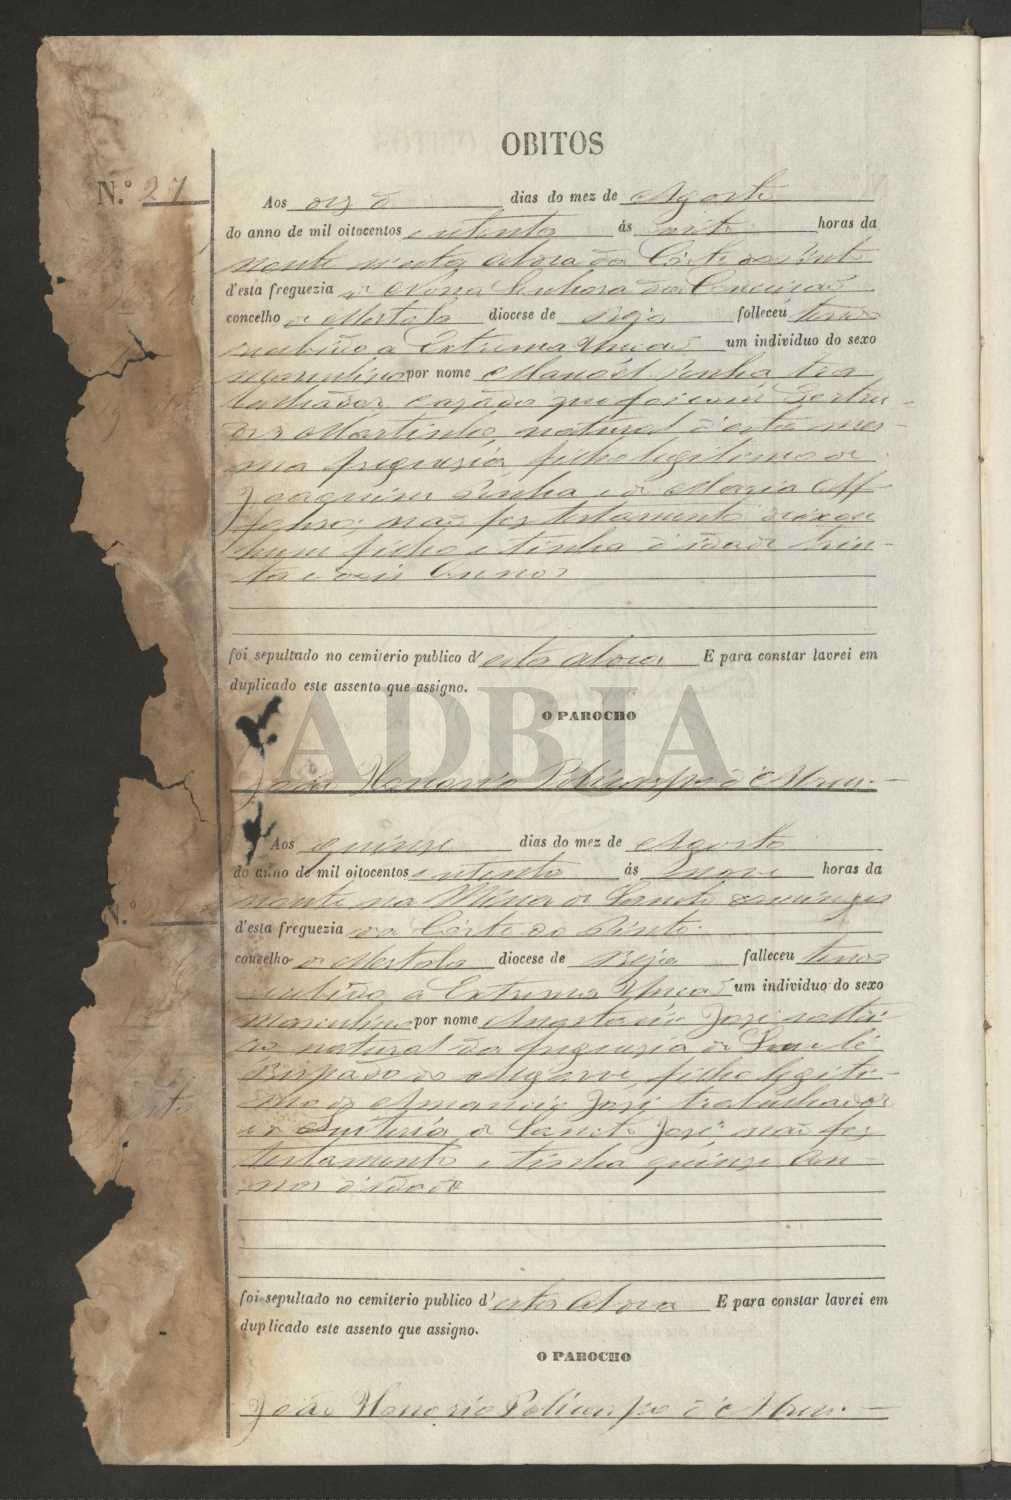 OBITOS
N.º 27
Aos dez dias do mez de Agosto
do anno de mil oitocentos e setenta ás oito horas da
nesta Aldea da Côrte do Pinto
d'esta freguezia de Nossa Senhora da Conceição
concelho de Mertola diocese de Beja falleceu tendo
recebido a Extrema Unção um individuo do sexo
masculino por nome Manoel Penha tra
balhador cazado que foi com Gertru-
des Martinho natural d'esta mes-
ma freguezia filho legitimo de
Joaquim Penha e de Maria
não fez testamento deixou
hum filho e tinha d'idade trin-
ta e seis annos
foi sepultado no cemiterio publico d'esta Aldea E para constar lavrei em
duplicado este assento que assigno.
O PAROCHO
João Honorio Policarpo d'Abreu.
ADBJA
Aos quinze dias do mez de Agosto
do anno de mil oitocentos e setenta ás nove horas da
na Mina de Sancto Domingos
d'esta freguezia da Côrte do Pinto
concelho de Mertola diocese de Beja falleceu tendo
recebido a Extrema Unção um individuo do sexo
masculino por nome Anastacio José soltei
ro natural da freguezia de
Bispado do Algarve filho legiti-
mo de Amancio José trabalhador
e de Quiteria de Sancto José não fez
testamento e tinha quinze an-
nos d'idade
N.º
foi sepultado no cemiterio publico d'esta Aldea E para constar lavrei em
duplicado este assento que assigno.
O PAROCHO
João Honorio Policarpo d'Abreu.